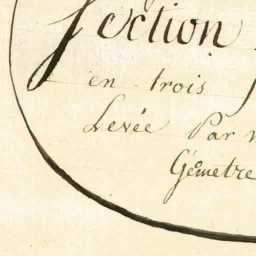 Section
en trois
Levée Par
Géometre